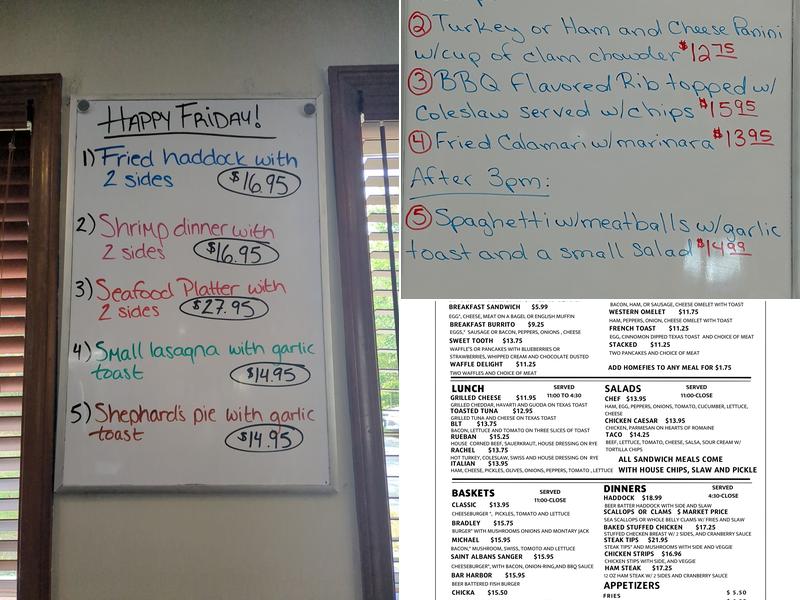 HAPPY FRIDAY!
1) Fried haddock with
2 sides $16.95
2) Shrimp dinner with
2 sides $16.95
3) Seafood Platter with
2 sides $27.95
4) Small lasagna with garlic
toast $14.95
5) Shephard's pie with garlic
toast $14.95
2 Turkey or Ham and Cheese Panini
w/cup of clam chowder $12.75
3 BBQ Flavored Rib topped w/
Coleslaw served w/chips $15.95
4 Fried Calamari w/marinara $13.95
After 3pm:
5 Spaghetti w/meatballs w/garlic
toast and a small salad $14.99
BREAKFAST SANDWICH $5.99
EGG*, CHEESE, MEAT ON A BAGEL OR ENGLISH MUFFIN
BREAKFAST BURRITO $9.25
EGGS,* SAUSAGE OR BACON, PEPPERS, ONIONS, CHEESE
SWEET TOOTH $13.75
WAFFLE'S OR PANCAKES WITH BLUEBERRIES OR
STRAWBERRIES, WHIPPED CREAM AND CHOCOLATE DUSTED
WAFFLE DELIGHT $11.25
TWO WAFFLES AND CHOICE OF MEAT
BACON, HAM, OR SAUSAGE, CHEESE OMELET WITH TOAST
WESTERN OMELET $11.75
HAM, PEPPERS, ONION, CHEESE OMELET WITH TOAST
FRENCH TOAST $11.25
EGG, CINNAMON DIPPED TEXAS TOAST AND CHOICE OF MEAT
STACKED $11.25
TWO PANCAKES AND CHOICE OF MEAT
ADD HOMEFIES TO ANY MEAL FOR $1.75
LUNCH SERVED
GRILLED CHEESE $11.95 11:00 TO 4:30
GRILLED CHEDDAR, HAVARTI AND GUODA ON TEXAS TOAST
TOASTED TUNA $12.95
GRILLED TUNA AND CHEESE ON TEXAS TOAST
BLT $13.75
BACON, LETTUCE AND TOMATO ON THREE SLICES OF TOAST
RUEBAN $15.25
HOUSE CORNED BEEF, SAUERKRAUT, HOUSE DRESSING ON RYE
RACHEL $13.75
HOT TURKEY, COLESLAW, SWISS AND HOUSE DRESSING ON RYE
ITALIAN $13.95
HAM, CHEESE, PICKLES, OLIVES, ONIONS, PEPPERS, TOMATO, LETTUCE
SALADS SERVED
CHEF $13.95 11:00-CLOSE
HAM, EGG, PEPPERS, ONIONS, TOMATO, CUCUMBER, LETTUCE,
CHEESE
CHICKEN CAESAR $13.95
CHICKEN, PARMESAN ON HEARTS OF ROMAINE
TACO $14.25
BEEF, LETTUCE, TOMATO, CHEESE, SALSA, SOUR CREAM W/
TORTILLA CHIPS
ALL SANDWICH MEALS COME
WITH HOUSE CHIPS, SLAW AND PICKLE
BASKETS SERVED
11:00-CLOSE
CLASSIC $13.95
CHEESEBURGER*, PICKLES, TOMATO AND LETTUCE
BRADLEY $15.75
BURGER* WITH MUSHROOMS ONIONS AND MONTARY JACK
MICHAEL $15.95
BACON,* MUSHROOM, SWISS, TOMATO AND LETTUCE
SAINT ALBANS SANGER $15.95
CHEESEBURGER*, WITH BACON, ONION-RING, AND BBQ SAUCE
BAR HARBOR $15.95
BEER BATTERED FISH BURGER
CHICKA $15.50
DINNERS SERVED
HADDOCK $18.99 4:30-CLOSE
BEER BATTER HADDOCK WITH SIDE AND SLAW
SCALLOPS OR CLAMS $ MARKET PRICE
SEA SCALLOPS OR WHOLE BELLY CLAMS W/ FRIES AND SLAW
BAKED STUFFED CHICKEN $17.25
STUFFED CHICKEN BREAST W/ 2 SIDES, AND CRANBERRY SAUCE
STEAK TIPS $21.95
STEAK TIPS* AND MUSHROOMS WITH SIDE AND VEGGIE
CHICKEN STRIPS $16.96
CHICKEN STRIPS WITH SIDE, AND VEGGIE
HAM STEAK $17.25
12 OZ HAM STEAK W/ 2 SIDES AND CRANBERRY SAUCE
APPETIZERS
FRIES $ 5.50